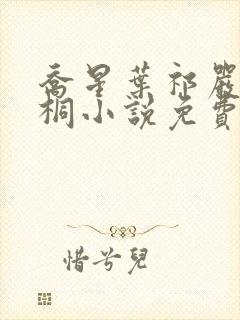 喬星葉祁嚴
桐小說免費
惜兮兒